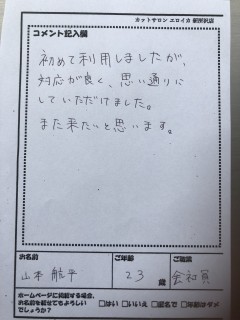 カットサロン エロイカ 新所沢店
コメント記入欄
初めて利用しましたが、
対応が良く、思い通りに
していただけました。
また来たいと思います。
お名前
ご年齢
ご職業
山本 航平
23 歳
会社員
ホームページに掲載する場合、
お名前を載せてもよろしい
でしょうか?
□はい □いいえ □匿名で □年齢はダメ